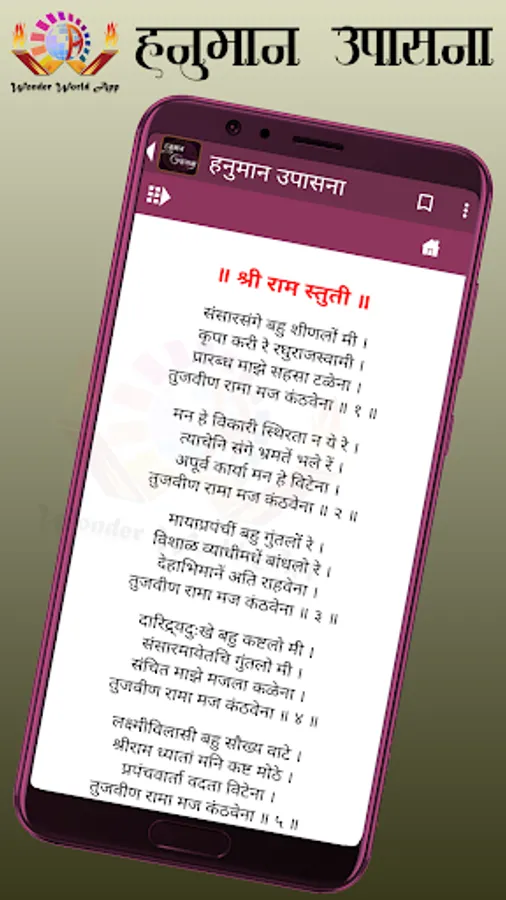 हनुमान उपासना
Wonder World App
हनुमान उपासना
॥ श्री राम स्तुती ॥
संसारसंगे बहु शीणलों मी ।
कृपा करी रे रघुराजस्वामी ।
प्रारब्ध माझे सहसा टळेना ।
तुजवीण रामा मज कंठवेना ॥ १ ॥
मन हे विकारी स्थिरता न ये रे ।
त्याचेनि संगे भ्रमतें भले रें ।
अपूर्व कार्या मन हे विटेना ।
तुजवीण रामा मज कंठवेना ॥ २ ॥
मायाप्रपंचीं बहु गुंतलों रे ।
विशाळ व्याधीमधें बांधलो रे ।
देहाभिमानें अति राहवेना ।
तुजवीण रामा मज कंठवेना ॥ ३ ॥
दारिद्र्यदुःखे बहु कष्टलो मी ।
संसारमायेतचि गुंतलो मी ।
संचित माझे मजला कळेना ।
तुजवीण रामा मज कंठवेना ॥ ४ ॥
लक्ष्मीविलासी बहु सौख्य वाटे ।
श्रीराम ध्यातां मनि कष्ट मोठे ।
प्रपंचवार्ता वदता विटेना ।
तुजवीण रामा मज कंठवेना ॥ ५ ॥